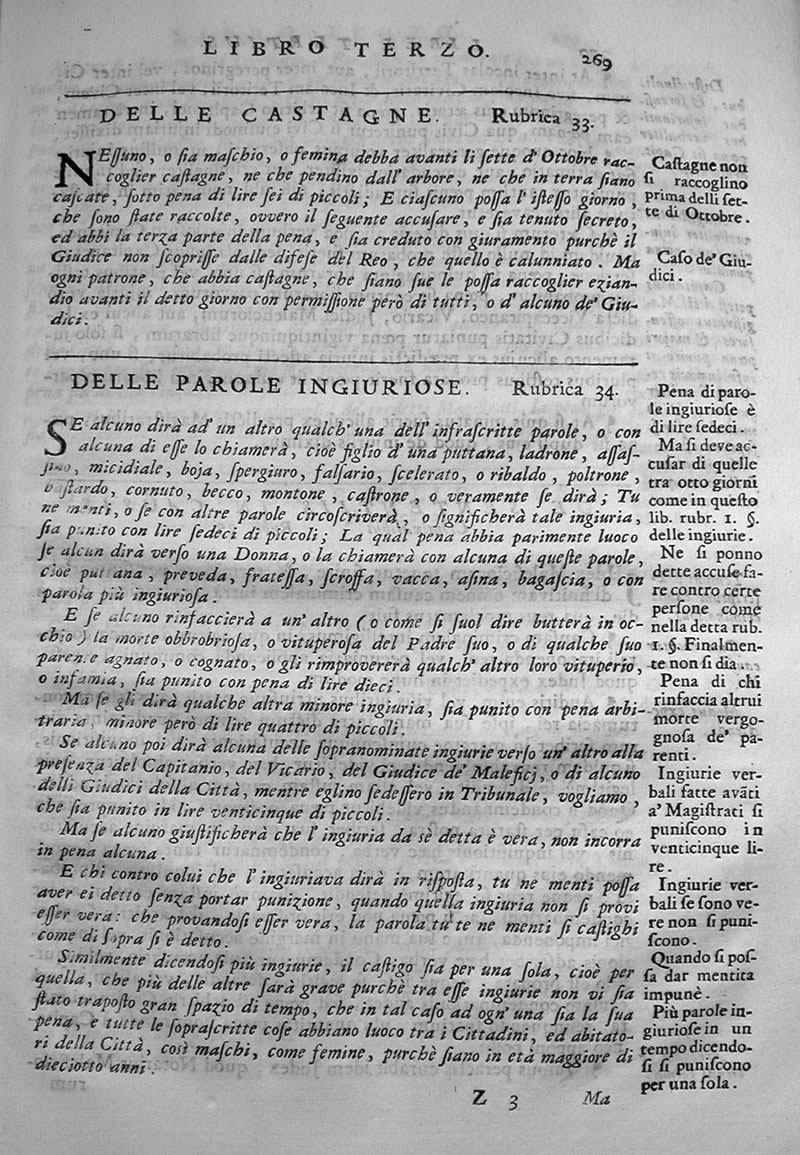 LIBRO TERZO.
269
DELLE CASTAGNE. Rubrica 33.
NEſſuno, o ſia maſchio, o femina debba avanti li ſette d'Ottobre rac-
coglier caſtagne, ne che pendino dall'arbore, ne che in terra ſiano
caſcate, ſotto pena di lire ſei di piccoli; E ciaſcuno poſſa l'iſteſſo giorno,
che ſono ſtate raccolte, ovvero il ſeguente accuſare, e ſia tenuto ſecreto,
ed abbi la terza parte della pena, e ſia creduto con giuramento purchè il
Giudice non ſcopriſſe dalle difeſe del Reo, che quello è calunniato. Ma
ogni patrone, che abbia caſtagne, che ſiano ſue le poſſa raccoglier ezian-
dio avanti il detto giorno con permiſſione però di tutti, o d'alcuno de' Giu-
dici.
Caſtagne non
ſi raccoglino
prima delli ſet-
te di Ottobre.
Caſo de' Giu-
dici.
DELLE PAROLE INGIURIOSE. Rubrica 34.
SE alcuno dirà ad' un altro qualch' una dell' infraſcritte parole, o con
alcuna di eſſe lo chiamerà, cioè figlio d' una puttana, ladrone, aſſaſ-
ſino, micidiale, boja, ſpergiuro, falſario, ſcelerato, o ribaldo, poltrone,
baſtardo, cornuto, becco, montone, caſtrone, o veramente ſe dirà; Tu
ne menti, o ſe con altre parole circoſcriverà, o ſignificherà tale ingiuria,
ſia punito con lire ſedeci di piccoli; La qual pena abbia parimente luoco
ſe alcun dirà verſo una Donna, o la chiamerà con alcuna di queſte parole,
cioè puttana, preveda, frateſſa, ſcroffa, vacca, aſina, bagaſcia, o con
parola più ingiurioſa.
E ſe alcuno rinfaccierà a un' altro (o come ſi ſuol dire butterà in oc-
chio) la morte obbrobrioſa, o vituperoſa del Padre ſuo, o di qualche ſuo
parente agnato, o cognato, o gli rimprovererà qualch' altro loro vituperio,
o infamia, ſia punito con pena di lire dieci.
Ma ſe gli dirà qualche altra minore ingiuria, ſia punito con pena arbi-
traria, minore però di lire quattro di piccoli.
Se alcuno poi dirà alcuna delle ſopranominate ingiurie verſo un' altro alla
preſenza del Capitanio, del Vicario, del Giudice de' Maleficj, o di alcuno
delli Giudici della Città, mentre eglino ſedeſſero in Tribunale, vogliamo,
che ſia punito in lire venticinque di piccoli.
Ma ſe alcuno giuſtificherà che l' ingiuria da sè detta è vera, non incorra
in pena alcuna.
E chi contro colui che l' ingiuriava dirà in riſpoſta, tu ne menti poſſa
aver ei detto ſenza portar punizione, quando quella ingiuria non ſi provi
eſſer vera: che provandoſi eſſer vera, la parola tu te ne menti ſi caſtighi
come di ſopra ſi è detto.
Similmente dicendoſi più ingiurie, il caſtigo ſia per una ſola, cioè per
quella, che più delle altre ſarà grave purchè tra eſſe ingiurie non vi ſia
ſtato trapoſto gran ſpazio di tempo, che in tal caſo ad ogn' una ſia la ſua
pena, e tutte le ſopraſcritte coſe abbiano luoco tra i Cittadini, ed abitato-
ri della Città, così maſchi, come femine, purchè ſiano in età maggiore di
dieciotto anni.
Pena di paro-
le ingiurioſe è
di lire ſedeci.
Ma ſi deve ac-
cuſar di quelle
tra otto giorni
come in queſto
lib. rubr. 1. §.
delle ingiurie.
Ne ſi ponno
dette accuſe fa-
re contro certe
perſone come
nella detta rub.
1. §. Finalmen-
te non ſi dia.
Pena di chi
rinfaccia altrui
morte vergo-
gnoſa de' pa-
renti.
Ingiurie ver-
bali fatte avãti
a' Magiſtrati ſi
puniſcono in
venticinque li-
re.
Ingiurie ver-
bali ſe ſono ve-
re non ſi puni-
ſcono.
Quando ſi poſ-
ſa dar mentita
impunè.
Più parole in-
giurioſe in un
tempo dicendo-
ſi ſi puniſcono
per una ſola.
Z 3 Ma